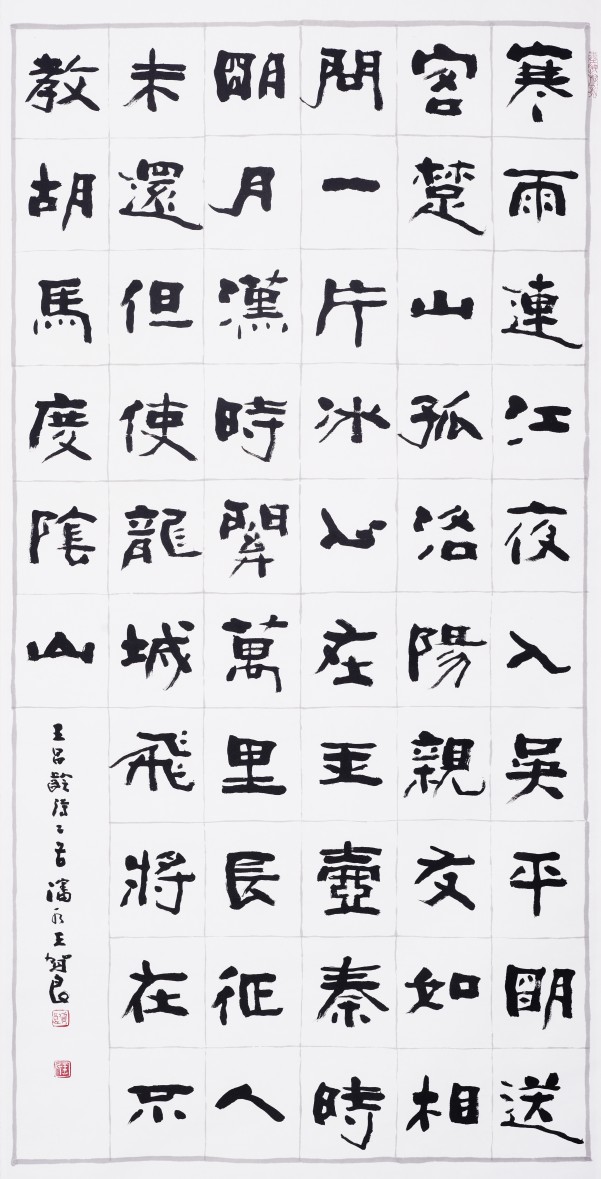 寒雨連江夜入吳平明送
客楚山孤洛陽親友如相
問一片冰心在玉壺秦時
明月漢時關萬里長征人
未還但使龍城飛將在不
教胡馬度陰山
王昌齡詩二首瀋水王賀良